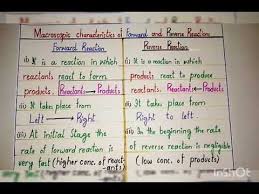 Macroscopic characteristics of Forward and Reverse Reaction
Forward Reaction
(i) It is a reaction in which
reactants react to form
products. Reactants → Products
(ii) It take place from
Left → Right
(iii) At Initial Stage the
rate of forward reaction is
very fast (higher conc. of react-
ants)
Reverse Reaction
(i) It is a reaction in which
products react to produce
reactants. Reactants ← Products
(ii) It take place from
Right to left.
(iii) In the beginning the rate
of reverse reaction is negligible
(low conc. of products)
InShot